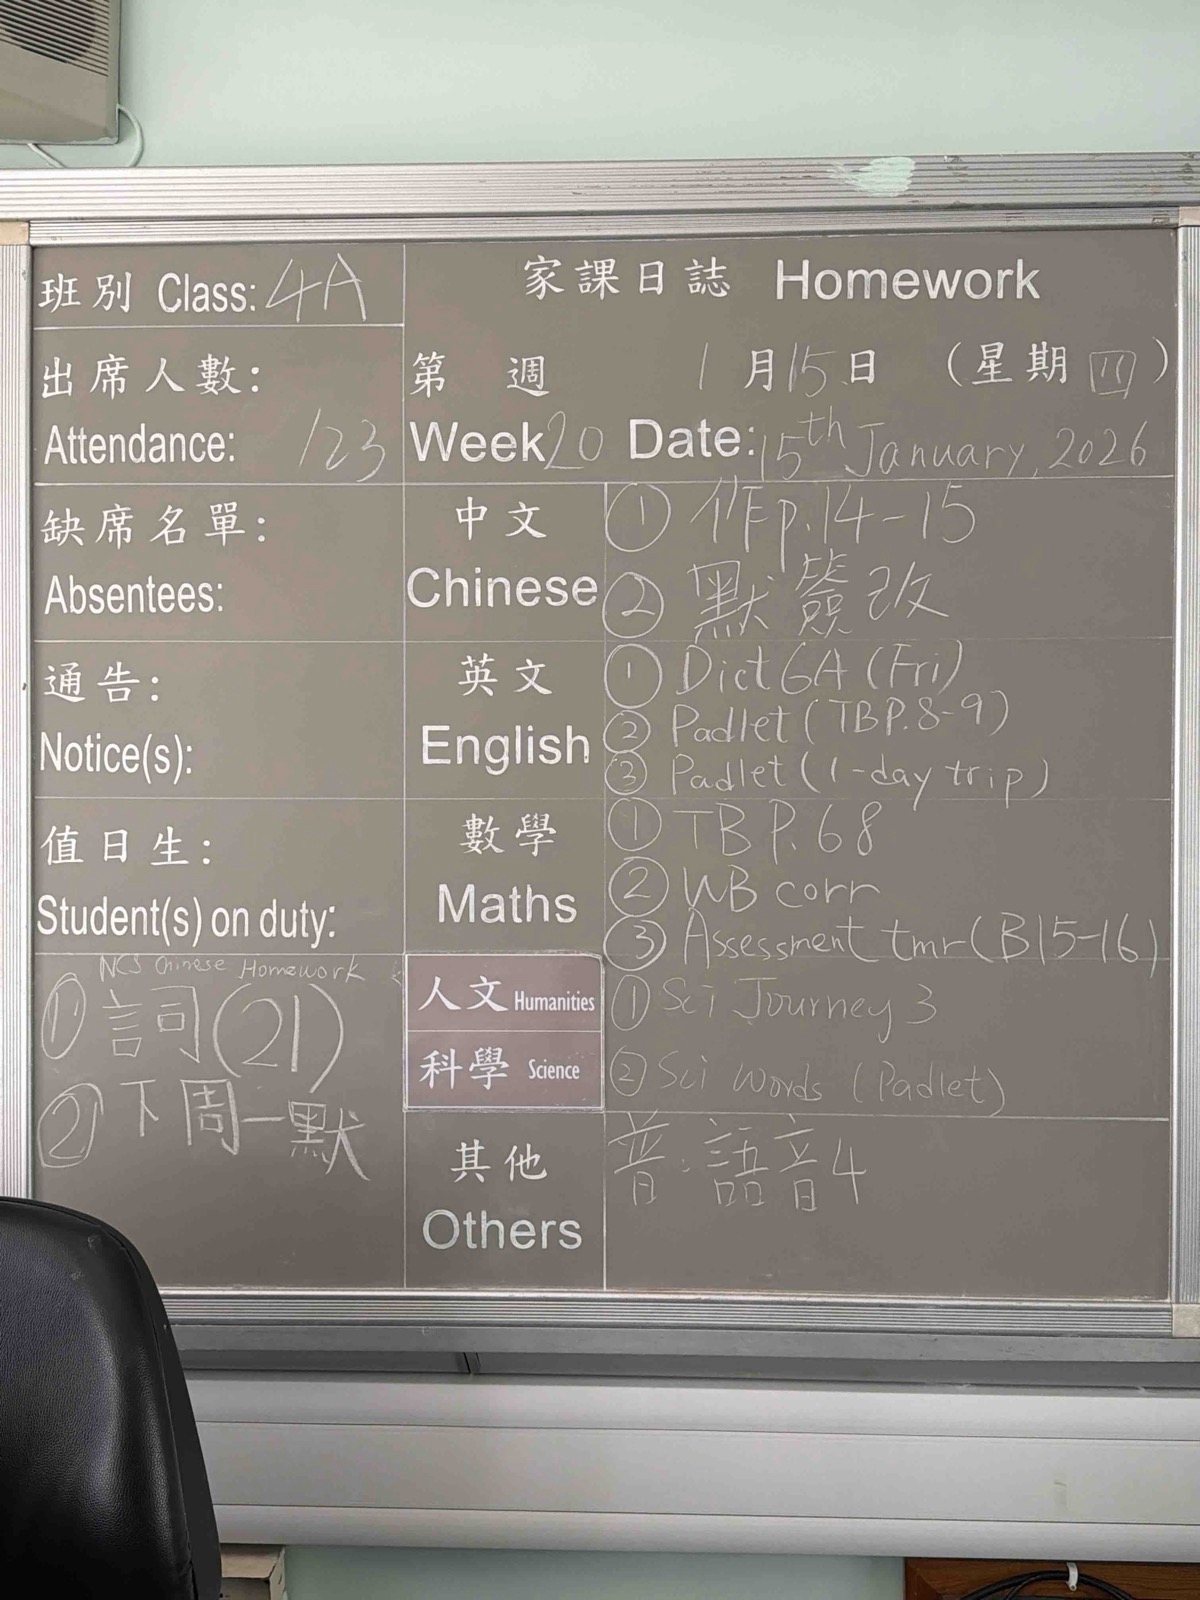 班別 Class: 4A
家課日誌 Homework
出席人數:
Attendance: 123
第 週 1月15日 (星期四)
Week 20 Date: 15th January, 2026
缺席名單:
Absentees:
中文
Chinese
① 作p.14-15
② 默簽改
通告:
Notice(s):
英文
English
① Dict 6A (Fri)
② Padlet (TB P.8-9)
③ Padlet (1-day trip)
值日生:
Student(s) on duty:
數學
Maths
① TB P.68
② WB corr
③ Assessment tmr (B15-16)
NCS Chinese Homework
① 詞(21)
② 下周一默
人文 Humanities
科學 Science
① Sci Journey 3
② Sci Words (Padlet)
其他
Others
普:語音4